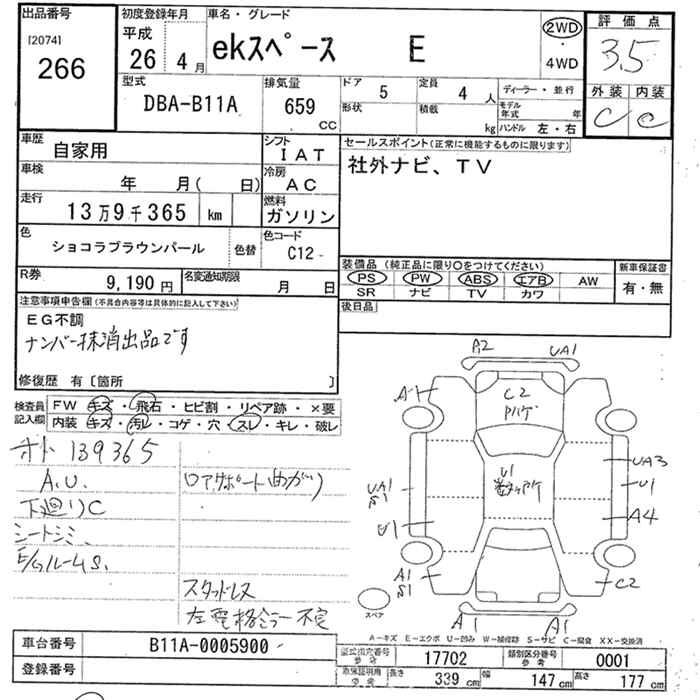 出品番号
[2074]
266
初度登録年月
平成
26 4 月
車名・グレード
ekスペース E
2WD
・
4WD
評価点
3.5
外装 内装
C C
型式
DBA-B11A
排気量
659
CC
ドア
5
定員
4 人
ディーラー・並行
形状
積載
kg
モデル年式 年
ハンドル 左・右
車歴
自家用
シフト
IAT
車検
年 月( 日)
冷房
AC
走行
13万9千365 km
燃料
ガソリン
色
ショコラブラウンパール
色替
色コード
C12
R券
9,190 円
名変通知期限
月 日
セールスポイント(正常に機能するものに限ります)
社外ナビ、TV
装備品 (純正品に限り〇をつけてください)
PS PW ABS エアB AW
SR ナビ TV カワ
新車保証書
有・無
後日品
注意事項申告欄(不具合内容等は具体的に記入して下さい)
EG不調
ナンバー抹消出品です
修復歴 有 [箇所 ]
検査員
記入欄
FW キズ・飛石・ヒビ割・リペア跡・×要
内装 キズ・汚レ・コゲ・穴・スレ・キレ・破レ
オド 139365
A.U.
下廻りC
シートシミ
E/gルームS.
ロアサポート曲がり
スタッドレス
左電格ミラー不良
A2
UA1
A1
C2
UA3
U1
A4
UA1
S1
U1
U1
A1
S1
C2
スペア
A1
A1
A-キズ E-エクボ U-凹み W-補修跡 S-サビ C-腐食 XX-交換済
車台番号
B11A-0005900
登録番号
型式指定番号
参考
17702
類別区分番号
参考
0001
車庫証明用
参考
長さ
339 cm
幅
147 cm
高さ
177 cm